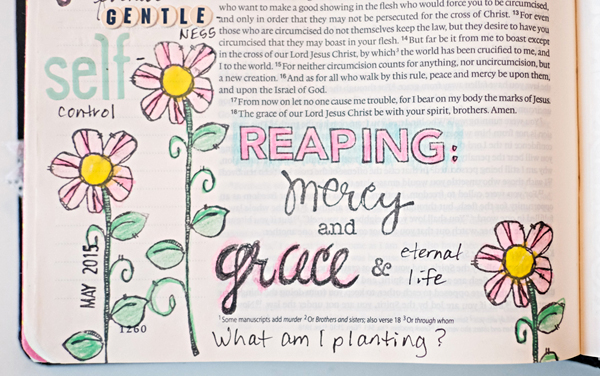 GENTLE-
NESS
self-
control
who want to make a good showing in the flesh who would force you to be circumcised,
and only in order that they may not be persecuted for the cross of Christ. 13 For even
those who are circumcised do not themselves keep the law, but they desire to have you
circumcised that they may boast in your flesh. 14 But far be it from me to boast except
in the cross of our Lord Jesus Christ, by which2 the world has been crucified to me, and
I to the world. 15 For neither circumcision counts for anything, nor uncircumcision, but
a new creation. 16 And as for all who walk by this rule, peace and mercy be upon them,
and upon the Israel of God.
17 From now on let no one cause me trouble, for I bear on my body the marks of Jesus.
18 The grace of our Lord Jesus Christ be with your spirit, brothers. Amen.
REAPING:
mercy
and
grace & eternal
life
MAY 2015
1260
1 Some manuscripts add murder 2 Or Brothers and sisters; also verse 18 3 Or through whom
What am I planting?